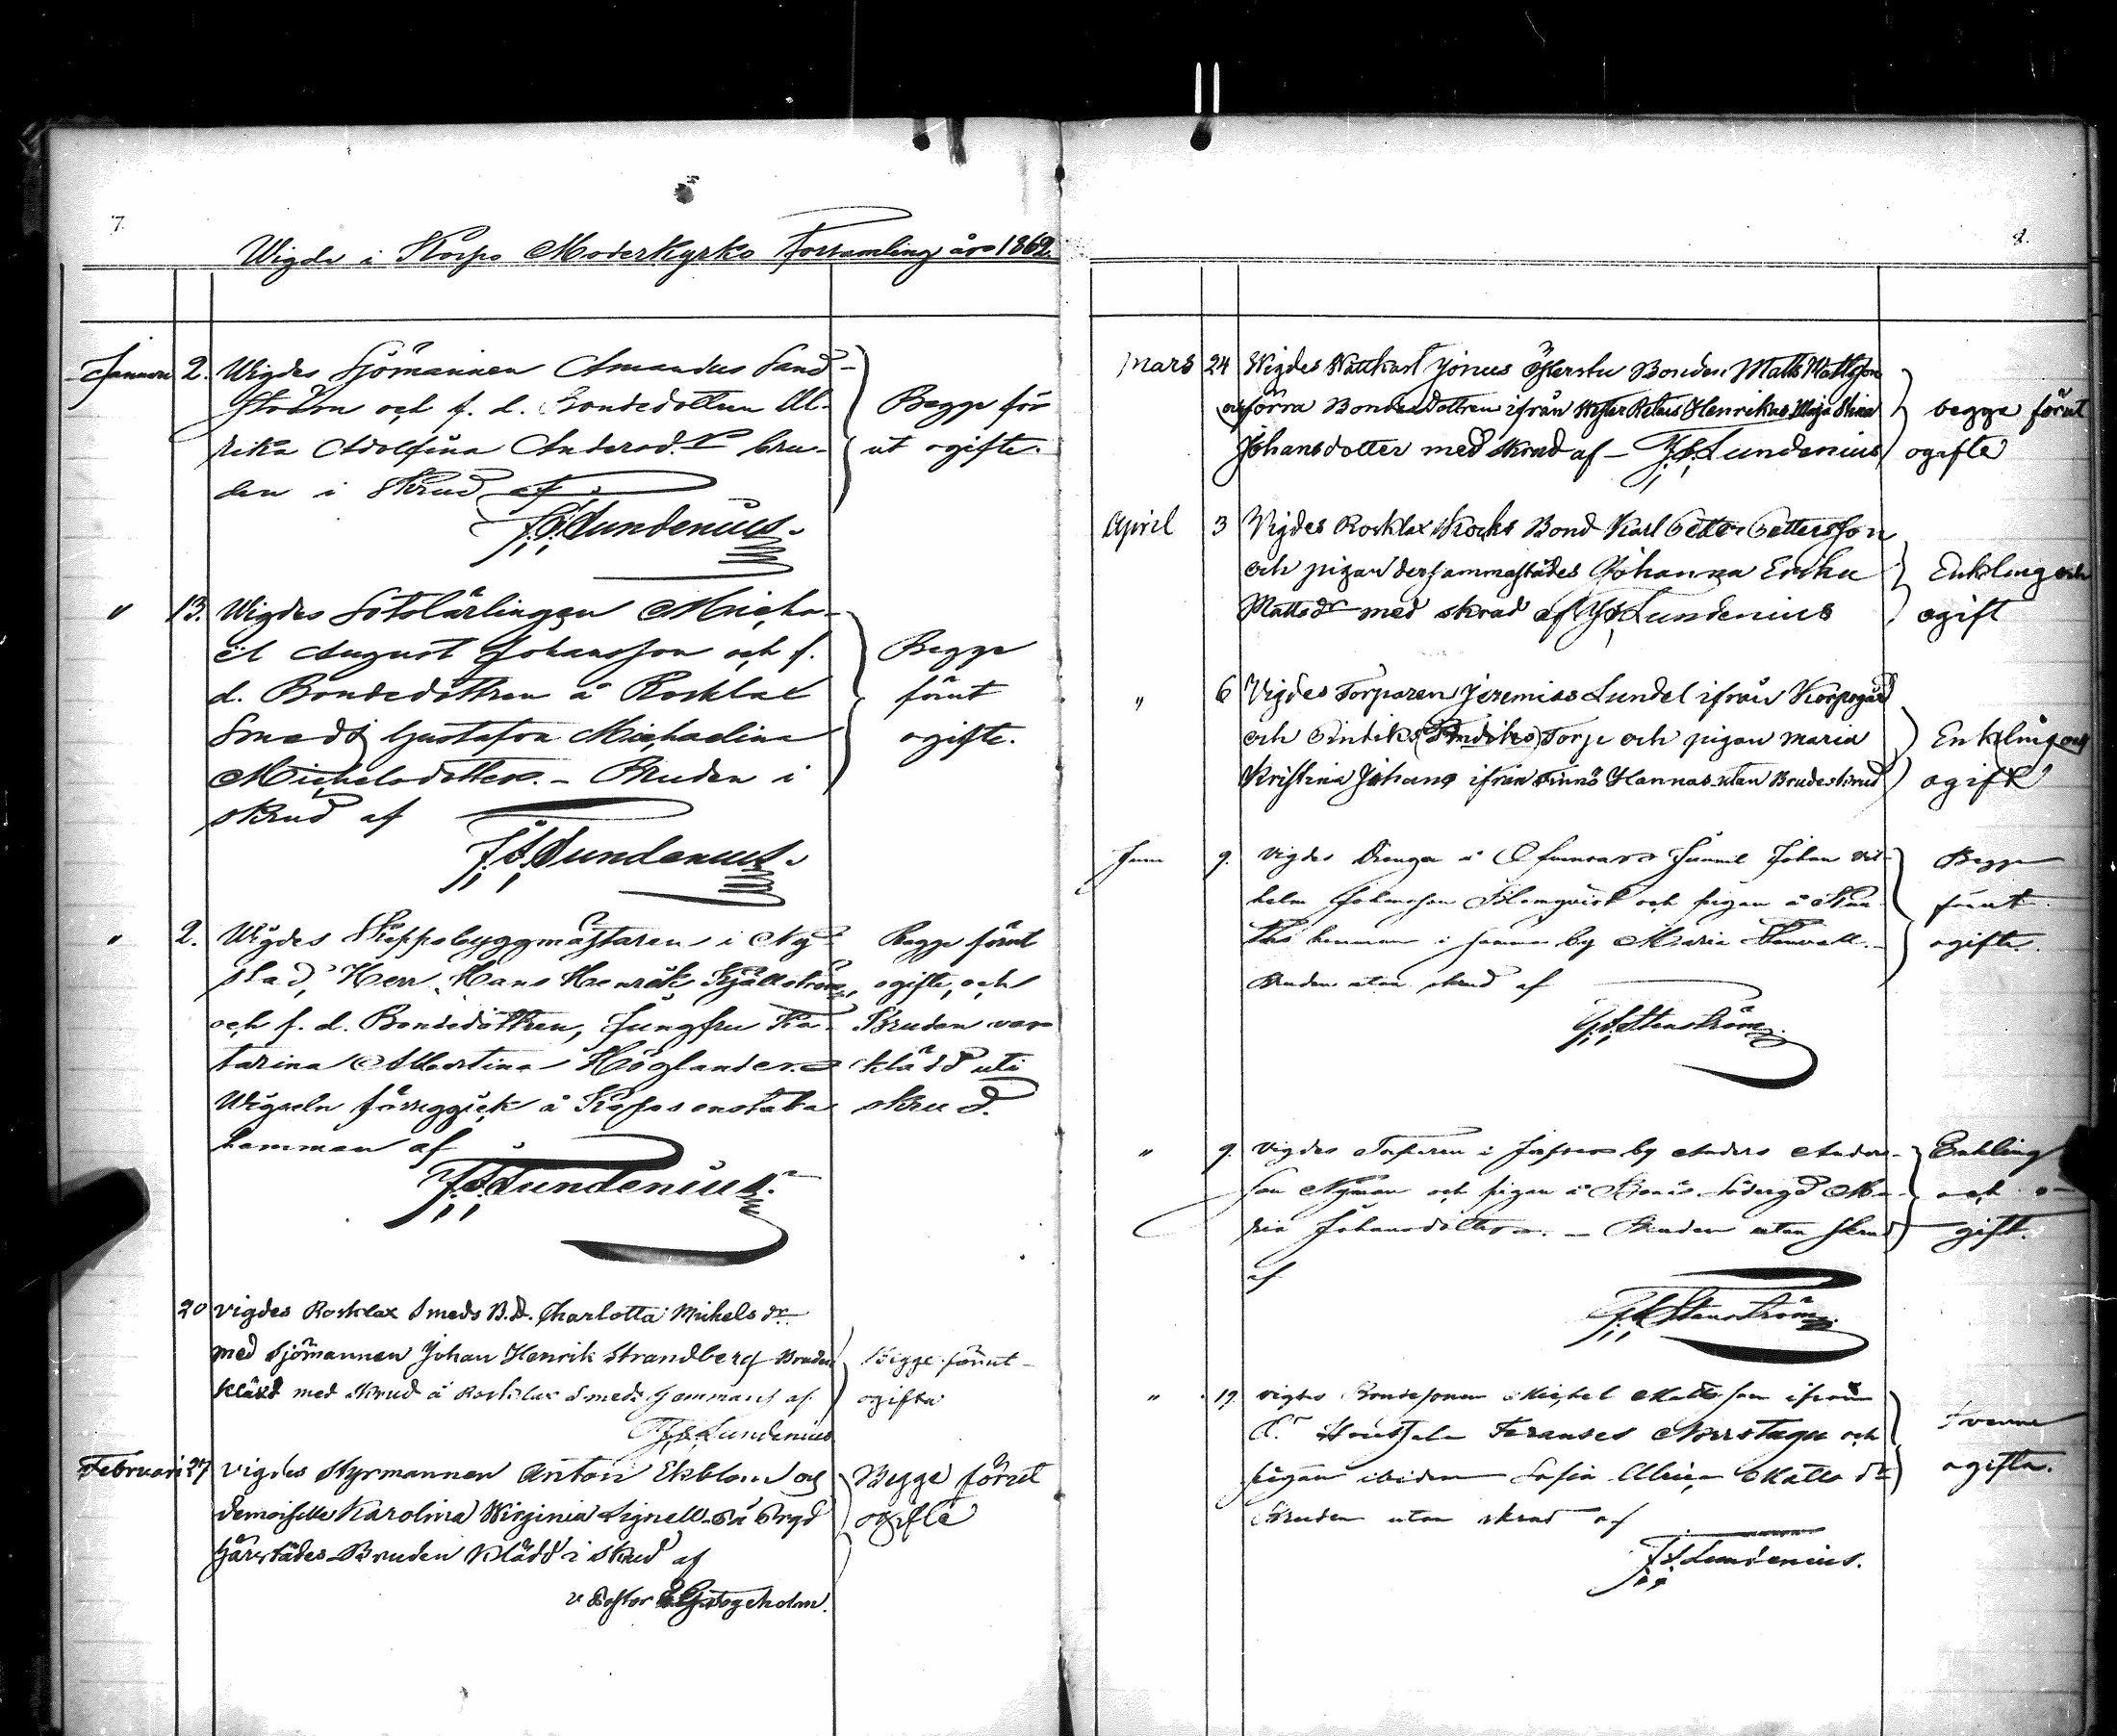 7.
Wigde i Korpo Moderkyrko Församling år 1862.
Januari 2. Wigdes Sjömannen Amandus Sand-
ström och f. d. Bondedottren Ul-
rika Adolfina Andersd.r bru-
den i skrud af
J. S. Lundenius.
Begge för
ut ogifte.
" 13. Wigdes Lotslärlingen Micha-
ël August Johansson och f.
d. Bondedottren å Rosklax
Smeds Gustafva Michaelina
Michelsdotter. - Bruden i
skrud af
J. S. Lundenius.
Begge
förut
ogifte.
" 2. Wigdes Skeppsbyggmästaren i Ny-
stad, Herr Hans Henrik Kjällström,
och f. d. Bondedottren, Jungfru Ka-
tarina Albertina Höglander.
Wigseln föreggick å
hemman af
J. S. Lundenius.
Begge förut
ogifte, och
Bruden var
klädd uti
skrud.
20 vigdes Rosklax Smeds B.d. Charlotta Mikels dr
med Sjömannen Johan Henrik Strandberg Bruden
klädd med skrud å Rosklax Smeds hemmans af.
J. S. Lundenius
Begge förut
ogifta
Februari 27 vigdes Styrmannen Anton Ekblom och
demoiselle Karolina Wirginia Lignell
härstädes Bruden klädd i skrud af
v Pastor
Begge förut
ogifte
8.
Mars 24 Wigdes Jonus Bonden Matts Mattsson
och förra Bondedottren ifrån Wester Retais Henrikas Maja Stina
Johansdotter med skrud af - J. S. Lundenius
begge förut
ogifte
April 3 Vigdes Rosklax Kocks Bond Karl Petter Pettersson
och pigan dersammastädes Johanna Erika
Mattsdr med skrud af J. S. Lundenius
Enkling och
ogift
" 6 Vigdes Torparen Jeremias Lundel ifrån Korpogård
och Torp och pigan Maria
Kristina Johans ifrån Finnö Hannas utan Brudeskrud
Enkling och
ogift
Juni 9. Vigdes Drengen å Johan Vil-
helm Johansson Blomqvist och pigan å
hemman i samma by Maria
Bruden utan skrud af
Stenström
Begge
förut
ogifte.
" 9. Vigdes Torparen i by Anders Anders-
son Nyman och pigan å Ma-
ria Johansdotter. - Bruden utan skrud
af
Stenström
Enkling
och o-
gift.
" 19. vigdes Bondesonen Michel Mattsson ifrån
Norrstuga och
pigan ibidem Sofia Ulrica Matts dr
Bruden utan skrud af
J. S. Lundenius.
ogifta.